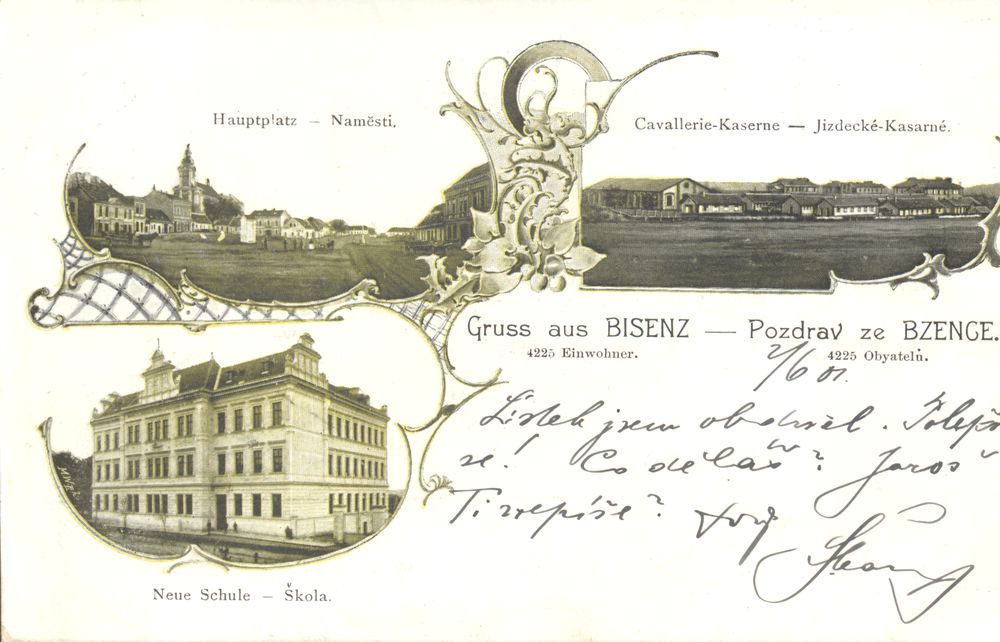 Hauptplatz – Naměsti.
Cavallerie-Kaserne — Jizdecké-Kasarné.
Gruss aus BISENZ — Pozdrav ze BZENCE.
4225 Einwohner.
4225 Obyatelů.
2/6 01.
Lístek jsem obdržel. Polepši
se! Co děláš? Jaroš
Ti nepíše?
Neue Schule – Škola.